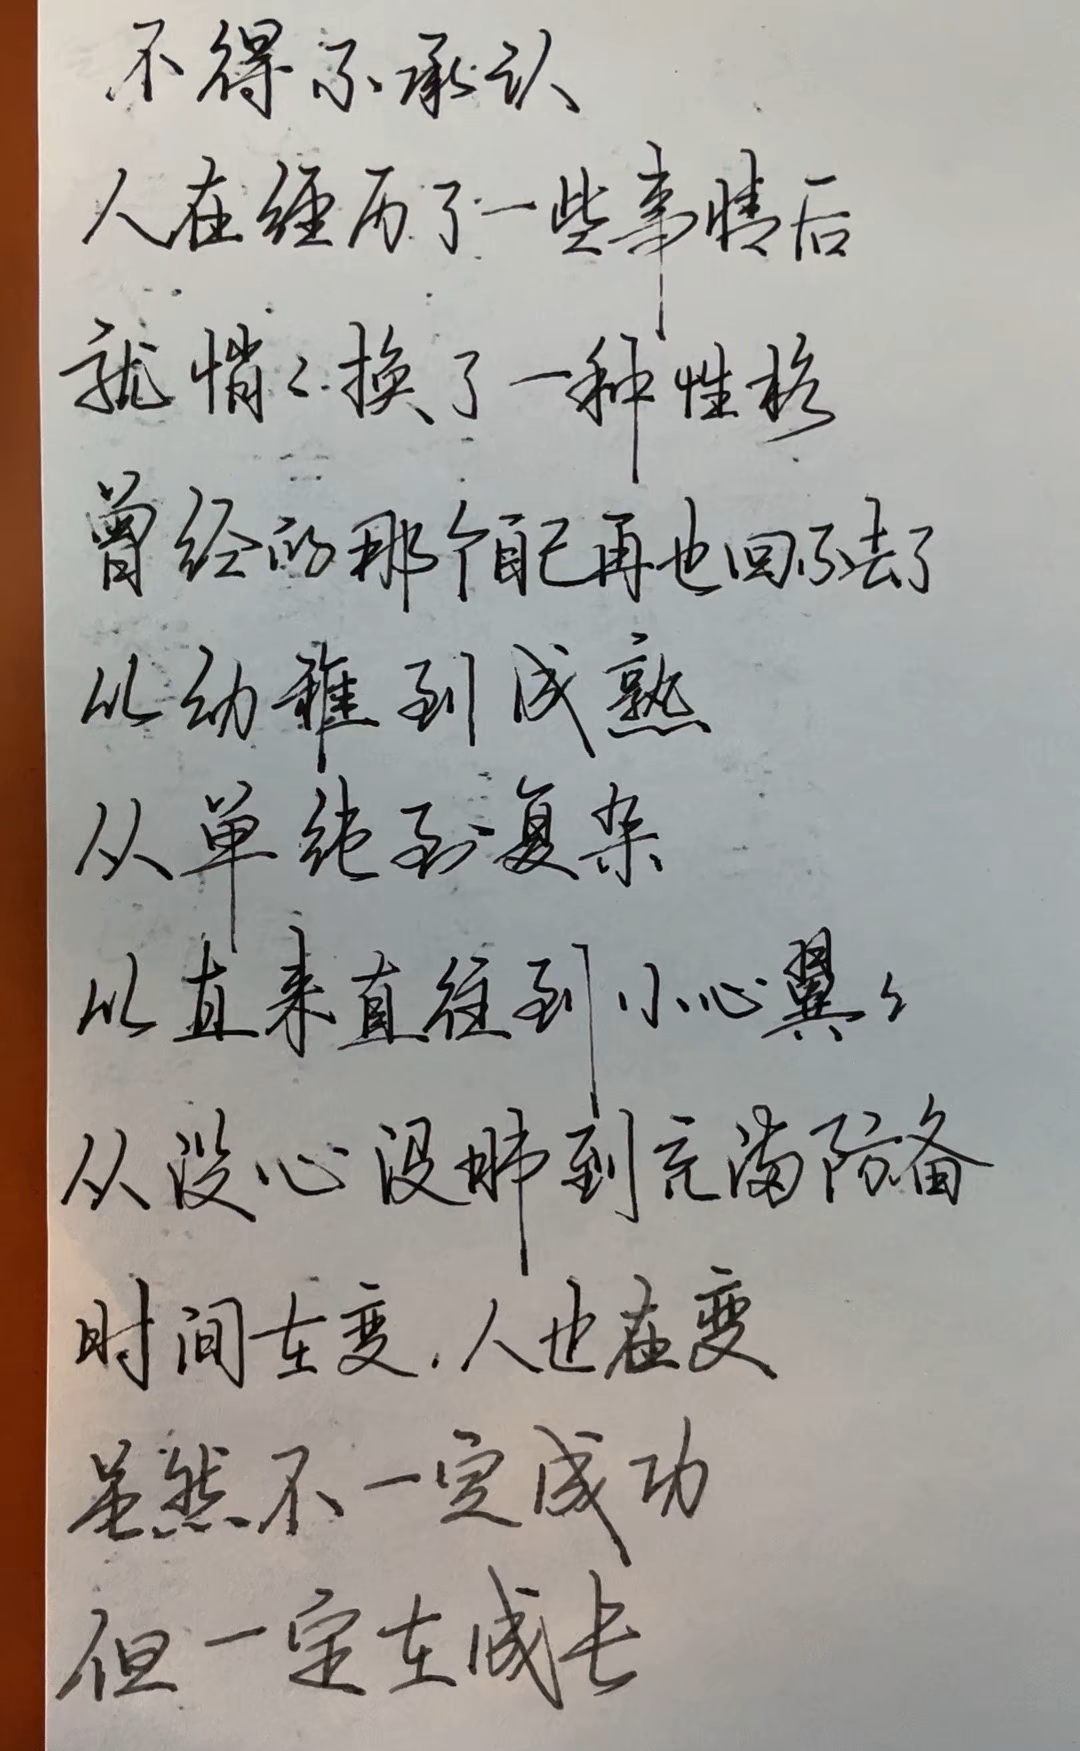 不得不承认
人在经历了一些事情后
就悄々换了一种性格
曾经的那个自己再也回不去了
从幼稚到成熟
从单纯到复杂
从直来直往到小心翼々
从没心没肺到充满防备
时间在变，人也在变
虽然不一定成功
但一定在成长